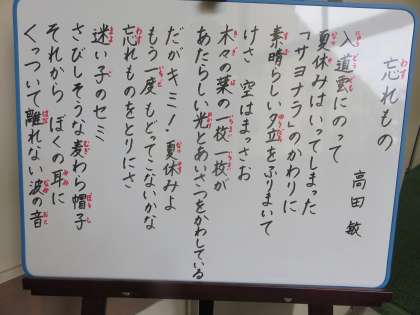 忘れもの
高田 敏
入道雲にのって
夏休みはいってしまった
「サヨナラ」のかわりに
素晴らしい夕立をふりまいて
けさ 空はまっさお
木々の葉の一枚一枚が
あたらしい光とあいさつをかわしている
だがキミ！夏休みよ
もう一度もどってこないかな
忘れものをとりにさ
迷い子のセミ
さびしそうな麦わら帽子
それから ぼくの耳に
くっついて離れない波の音